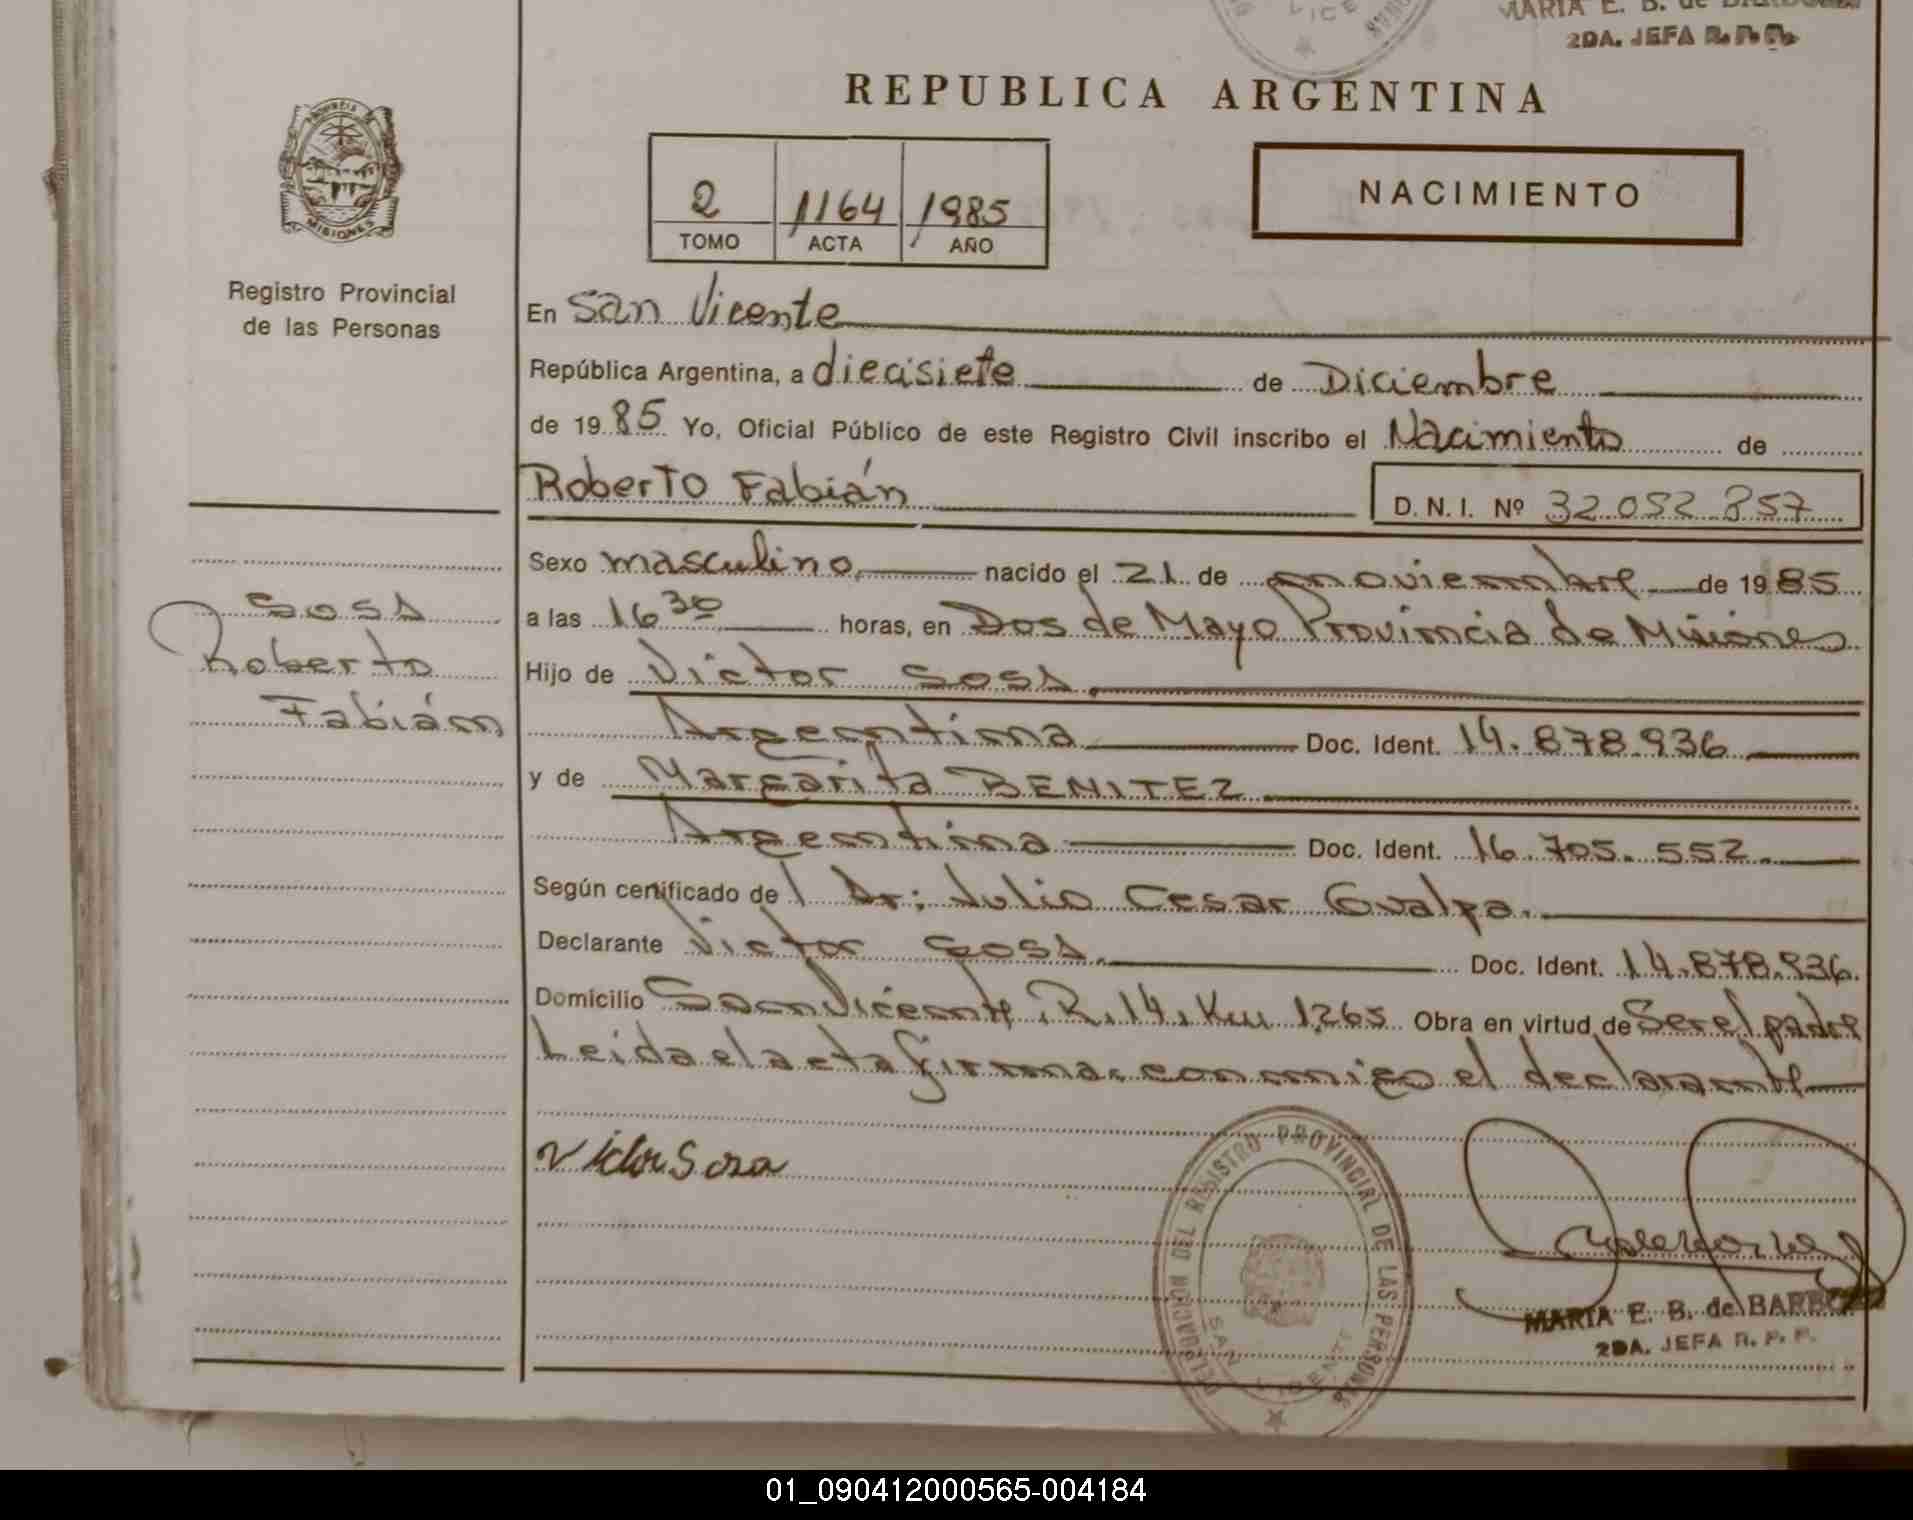 MARIA E. B. de
2DA. JEFA R. P. P.
REPUBLICA ARGENTINA
PROVINCIA DE
MISIONES
2 1164 1985
TOMO ACTA AÑO
NACIMIENTO
Registro Provincial
de las Personas
En San Vicente
República Argentina, a diecisiete de Diciembre
de 1985 Yo, Oficial Público de este Registro Civil inscribo el Nacimiento de
Roberto Fabián D. N. I. Nº 32.052.857
Sexo masculino nacido el 21 de noviembre de 1985
a las 16 30 horas, en Dos de Mayo Provincia de Misiones
Hijo de Victor Sosa
Argentina Doc. Ident. 14.878.936
y de Margarita BENITEZ
Argentina Doc. Ident. 16.705.552.
Según certificado del Dr: Julio Cesar Gualpa.
Declarante Victor Sosa. Doc. Ident. 14.878.936.
Domicilio San Vicente, R. 14, Km 1265 Obra en virtud de Ser el padre
Leida el acta firma conmigo el declarante
Sosa
Roberto
Fabián
Victor Sosa
DELEGACION DEL REGISTRO PROVINCIAL DE LAS PERSONAS
SAN VICENTE
MARIA E. B. de BARBOZA
2DA. JEFA R. P. P.
01_090412000565-004184